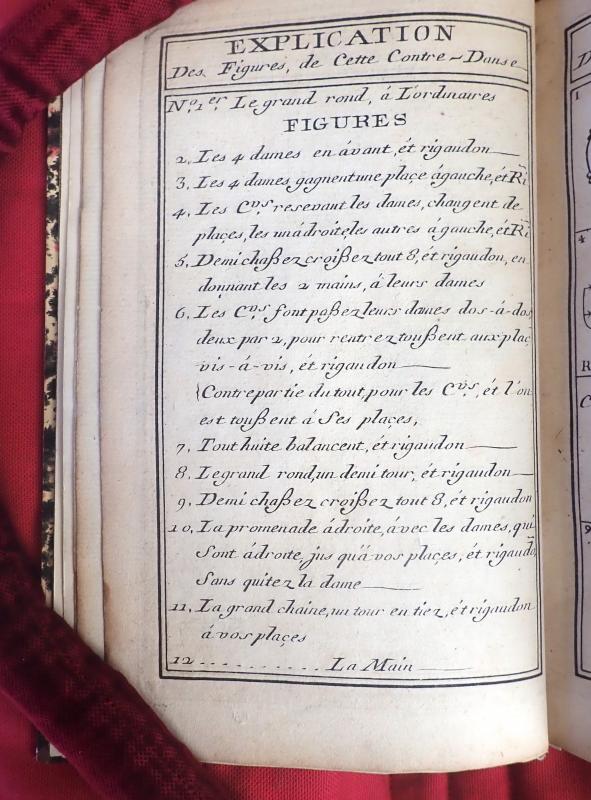 EXPLICATION
Des Figures, de Cette Contre-Danse
N.º 1.er Le grand rond, á L'ordinaires
FIGURES
2. Les 4 dames en ávant, ét rigaudon
3. Les 4 dames, gagnent une plaçe ágauche, ét R̃i
4. Les C.vs resevant les dames, changent de
plaçes, les un ádroite, les autres ágauche, ét R̃i
5. Demi chaßez croißez tout 8, ét rigaudon, en
donnant les 2 mains, á leurs dames
6. Les C.vs font paßez leurs dames dos-á-dos
deux par 2, pour rentrez toußent aux plaç
vis-á-vis, ét rigaudon
Contrepartie du tout, pour les C.vs, ét l'on
est toußent á Ses plaçes,
7. Tout huite balancent, ét rigaudon
8. Le grand rond, un demi tour, ét rigaudon
9. Demi chaßez croißez tout 8, ét rigaudon
10. La promenade ádroite, ávec les dames, qui
Sont ádroite, jus qu'á vos plaçes, ét rigaudo
Sans quitez la dame
11. La grand chaine, un tour en tiez, ét rigaudon
á vos plaçes
12 . . . . . . . . . . La Main
1
4
R
C
9